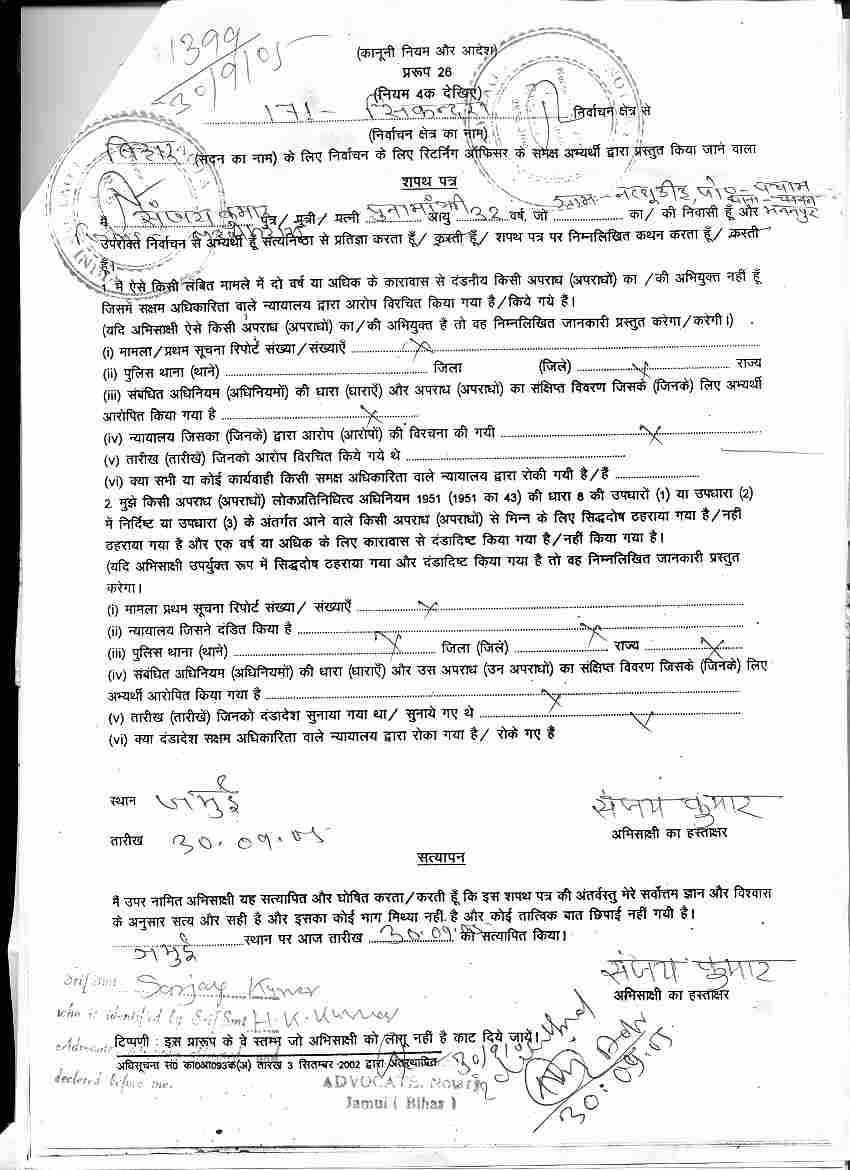 1399
30/9/05
(कानूनी नियम और आदेश)
प्ररूप 26
(नियम 4क देखिए)
171- सिकन्दरा निर्वाचन क्षेत्र से
(निर्वाचन क्षेत्र का नाम)
(सदन का नाम) के लिए निर्वाचन के लिए रिटर्निंग ऑफिसर के समक्ष अभ्यर्थी द्वारा प्रस्तुत किया जाने वाला
शपथ पत्र
मैं संजय कुमार पुत्र/ पुत्री/ पत्नी पुनामाँझी आयु 32 वर्ष, जो ग्राम- का/ की निवासी हूँ और
उपरोक्त निर्वाचन से अभ्यर्थी हूँ सत्यनिष्ठा से प्रतिज्ञा करता हूँ/ करती हूँ/ शपथ पत्र पर निम्नलिखित कथन करता हूँ/ करती
हूँ।
1. मैं ऐसे किसी लंबित मामले में दो वर्ष या अधिक के कारावास से दंडनीय किसी अपराध (अपराधों) का /की अभियुक्त नहीं हूँ
जिसमें सक्षम अधिकारिता वाले न्यायालय द्वारा आरोप विरचित किया गया है/किये गये हैं।
(यदि अभिसाक्षी ऐसे किसी अपराध (अपराधों) का/की अभियुक्त है तो वह निम्नलिखित जानकारी प्रस्तुत करेगा/करेगी।)
(i) मामला/प्रथम सूचना रिपोर्ट संख्या/संख्याएँ
(ii) पुलिस थाना (थाने) जिला (जिले) राज्य
(iii) संबंधित अधिनियम (अधिनियमों) की धारा (धाराएँ) और अपराध (अपराधों) का संक्षिप्त विवरण जिसके (जिनके) लिए अभ्यर्थी
आरोपित किया गया है
(iv) न्यायालय जिसका (जिनके) द्वारा आरोप (आरोपों) की विरचना की गयी
(v) तारीख (तारीखें) जिनको आरोप विरचित किये गये थे
(vi) क्या सभी या कोई कार्यवाही किसी समक्ष अधिकारिता वाले न्यायालय द्वारा रोकी गयी है/हैं
2. मुझे किसी अपराध (अपराधों) लोकप्रतिनिधित्व अधिनियम 1951 (1951 का 43) की धारा 8 की उपधारों (1) या उपधारा (2)
में निर्दिष्ट या उपधारा (3) के अंतर्गत आने वाले किसी अपराध (अपराधों) से भिन्न के लिए सिद्धदोष ठहराया गया है/नहीं
ठहराया गया है और एक वर्ष या अधिक के लिए कारावास से दंडादिष्ट किया गया है/नहीं किया गया है।
(यदि अभिसाक्षी उपर्युक्त रूप में सिद्धदोष ठहराया गया और दंडादिष्ट किया गया है तो वह निम्नलिखित जानकारी प्रस्तुत
करेगा।
(i) मामला प्रथम सूचना रिपोर्ट संख्या/ संख्याएँ
(ii) न्यायालय जिसने दंडित किया है
(iii) पुलिस थाना (थाने) जिला (जिले) राज्य
(iv) संबंधित अधिनियम (अधिनियमों) की धारा (धाराएँ) और उस अपराध (उन अपराधों) का संक्षिप्त विवरण जिसके (जिनके) लिए
अभ्यर्थी आरोपित किया गया है
(v) तारीख (तारीखें) जिनको दंडादेश सुनाया गया था/ सुनाये गए थे
(vi) क्या दंडादेश सक्षम अधिकारिता वाले न्यायालय द्वारा रोका गया है/ रोके गए हैं
स्थान जमुई
संजय कुमार
तारीख 30.09.05
अभिसाक्षी का हस्ताक्षर
सत्यापन
मैं उपर नामित अभिसाक्षी यह सत्यापित और घोषित करता/करती हूँ कि इस शपथ पत्र की अंतर्वस्तु मेरे सर्वोत्तम ज्ञान और विश्वास
के अनुसार सत्य और सही है और इसका कोई भाग मिथ्या नहीं है और कोई तात्विक बात छिपाई नहीं गयी है।
जमुई स्थान पर आज तारीख 30.09.05 को सत्यापित किया।
संजय कुमार
अभिसाक्षी का हस्ताक्षर
Sri/Smt Sanjay Kumar
who is identified by Sri/Smt H.K.Kumar
टिप्पणी: इस प्ररूप के वे स्तम्भ जो अभिसाक्षी को लागू नहीं है काट दिये जायें।
Advocate
अधिसूचना सं0 का0आ093क(अ) तारीख 3 सितम्बर 2002 द्वारा अंतःस्थापित
declared before me.
30/9/
ADVOCATE
Jamui ( Bihar )
30.09.05